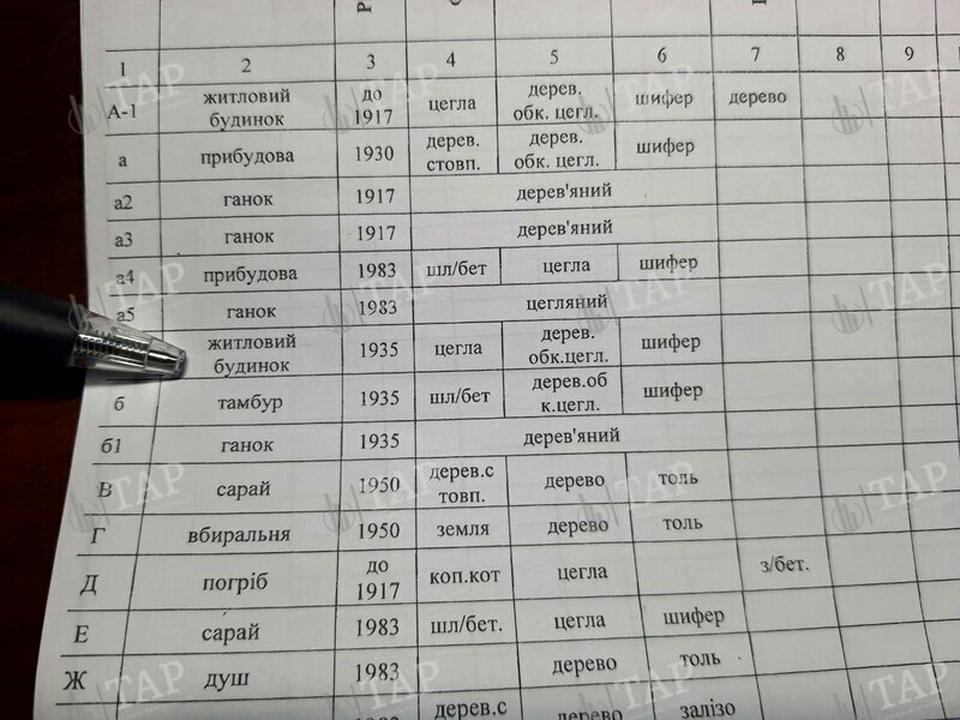 1 2 3 4 5 6 7 8 9
А-1 житловий будинок до 1917 цегла дерев. обк. цегл. шифер дерево
а прибудова 1930 дерев. стовп. дерев. обк. цегл. шифер
а2 ганок 1917 дерев'яний
а3 ганок 1917 дерев'яний
а4 прибудова 1983 шл/бет цегла шифер
а5 ганок 1983 цегляний
житловий будинок 1935 цегла дерев. обк.цегл. шифер
б тамбур 1935 шл/бет дерев.об к.цегл. шифер
б1 ганок 1935 дерев'яний
В сарай 1950 дерев.с товп. дерево толь
Г вбиральня 1950 земля дерево толь
Д погріб до 1917 коп.кот цегла з/бет.
Е сарай 1983 шл/бет. цегла шифер
Ж душ 1983 дерево толь
дерев.с дерево залізо
ТАР